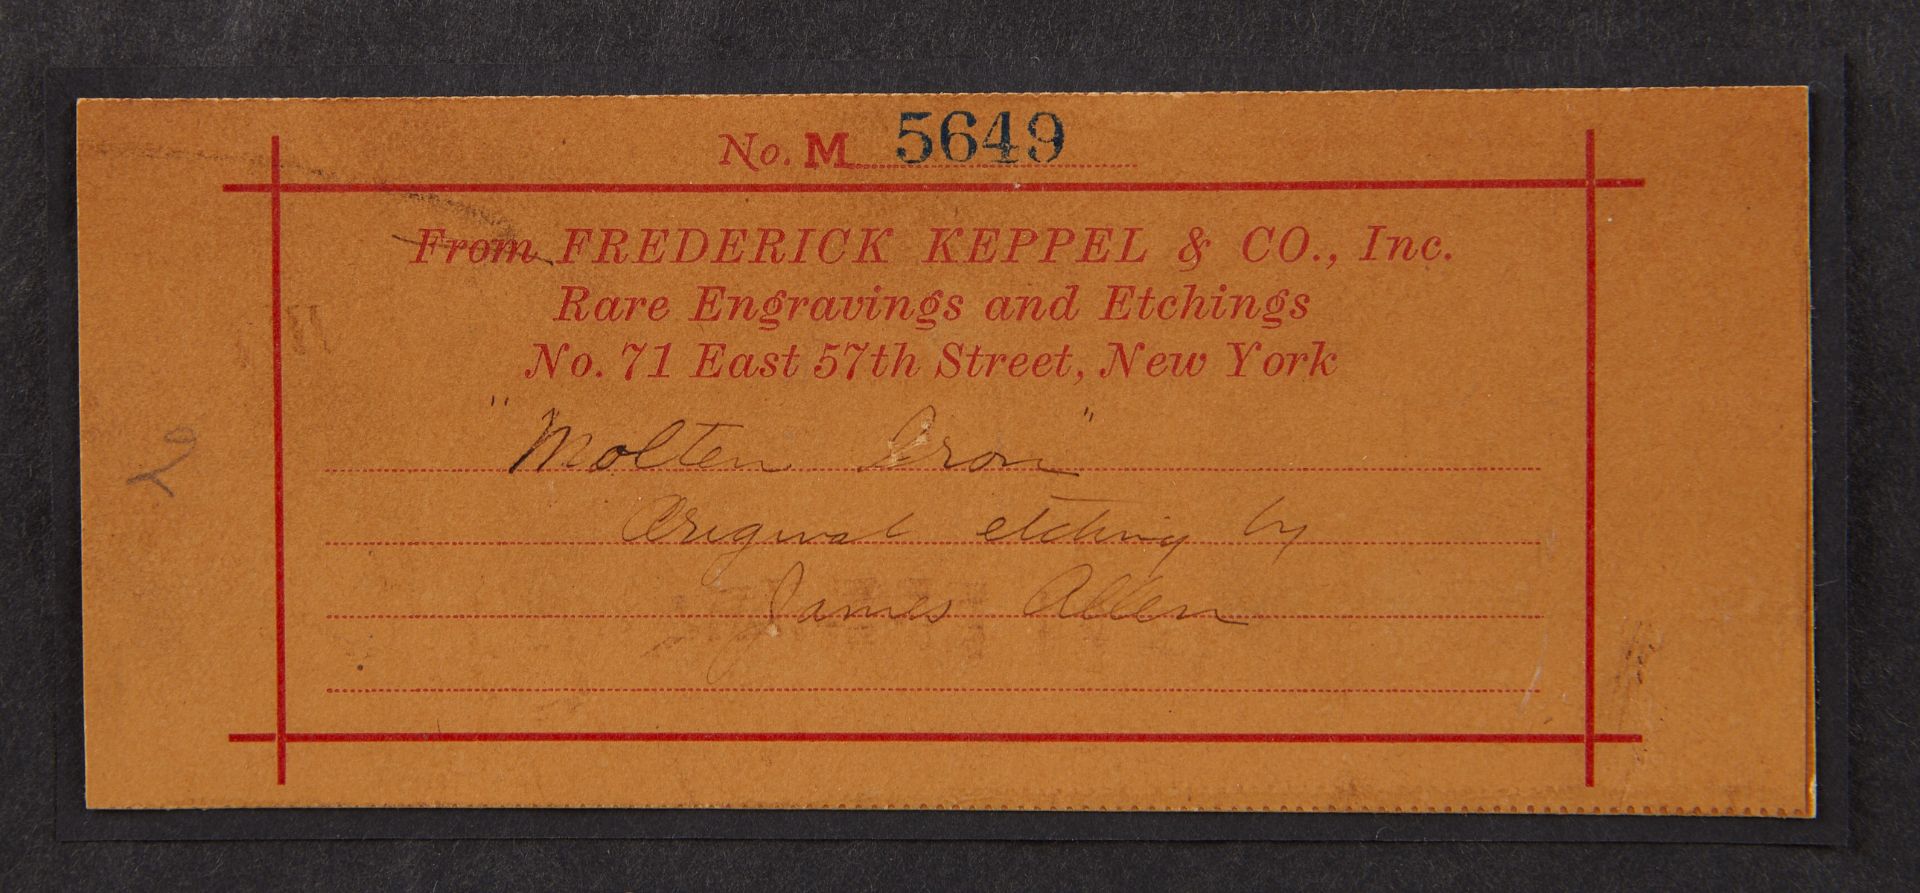 No. M 5649
From FREDERICK KEPPEL & CO., Inc.
Rare Engravings and Etchings
No. 71 East 57th Street, New York
"Molten Iron"
Original etching by
James Allen